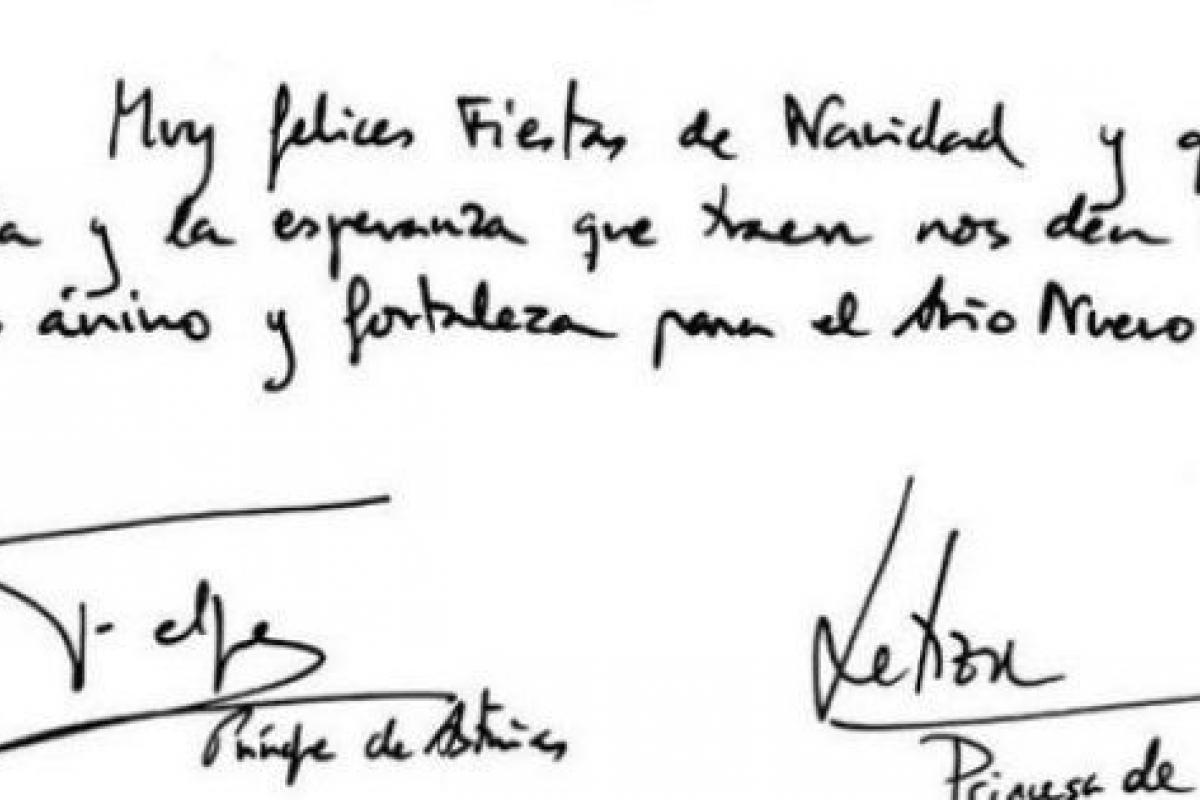 Muy felices Fiestas de Navidad y q
a y la esperanza que traen nos den
ánimo y fortaleza para el Año Nuevo
Felipe
Letizia
Príncipe de Asturias
Princesa de